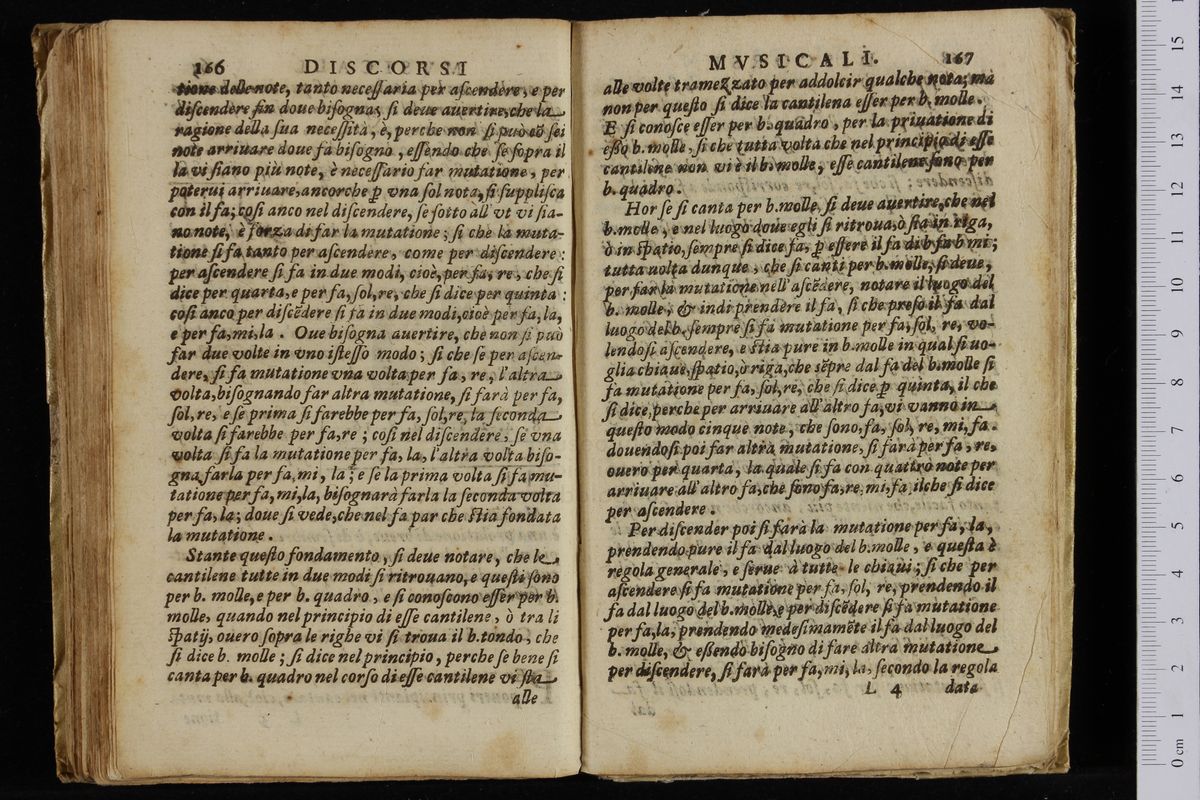 166 DISCORSI
tione delle note, tanto neceſſaria per aſcendere, e per
diſcendere ſin doue biſogna; ſi deue auertire, che la
ragione della ſua neceſſità, è, perche non ſi può cō ſei
note arriuare doue fa biſogno, eſſendo che ſe ſopra il
la vi ſiano più note, è neceſſario far mutatione, per
poterui arriuare, ancorche ꝑ vna ſol nota, ſi ſuppliſca
con il fa; coſi anco nel diſcendere, ſe ſotto all' vt vi ſia-
no note, è forza di far la mutatione; ſi che la muta-
tione ſi fa tanto per aſcendere, come per diſcendere:
per aſcendere ſi fa in due modi, cioè, per fa, re, che ſi
dice per quarta, e per fa, ſol, re, che ſi dice per quinta:
coſi anco per diſcēdere ſi fa in due modi, cioè per fa, la,
e per fa, mi, la. Oue biſogna auertire, che non ſi può
far due volte in vno iſteſſo modo; ſi che ſe per aſcen-
dere, ſi fa mutatione vna volta per fa, re, l'altra
volta, biſognando far altra mutatione, ſi farà per fa,
ſol, re, e ſe prima ſi farebbe per fa, ſol, re, la ſeconda
volta ſi farebbe per fa, re; coſi nel diſcendere, ſe vna
volta ſi fa la mutatione per fa, la, l'altra volta biſo-
gna farla per fa, mi, la; e ſe la prima volta ſi fa mu-
tatione per fa, mi, la, biſognarà farla la ſeconda volta
per fa, la; doue ſi vede, che nel fa par che ſtia fondata
la mutatione.
Stante queſto fondamento, ſi deue notare, che le
cantilene tutte in due modi ſi ritrouano, e queſti ſono
per b. molle, e per b. quadro, e ſi conoſcono eſſer per b.
molle, quando nel principio di eſſe cantilene, ò tra li
ſpatij, ouero ſopra le righe vi ſi troua il b. tondo, che
ſi dice b. molle; ſi dice nel principio, perche ſe bene ſi
canta per b. quadro nel corſo di eſſe cantilene vi ſta
alle
MVSICALI. 167
alle volte tramezzato per addolcir qualche nota; mà
non per queſto ſi dice la cantilena eſſer per b. molle.
E ſi conoſce eſſer per b. quadro, per la priuatione di
eßo b. molle, ſi che tutta volta che nel principio di eſſe
cantilene non vi è il b. molle, eſſe cantilene ſono per
b. quadro.
Hor ſe ſi canta per b. molle, ſi deue auertire, che nel
b. molle, e nel luogo doue egli ſi ritroua, ò ſta in riga,
ò in ſpatio, ſempre ſi dice fa, ꝑ eſſere il fa di b fa b mi;
tutta uolta dunque, che ſi canti per b. molle, ſi deue,
per far la mutatione nell' aſcēdere, notare il luogo del
b. molle, & indi prendere il fa, ſi che preſo il fa dal
luogo del b. ſempre ſi fa mutatione per fa, ſol, re, vo-
lendoſi aſcendere, e ſtia pure in b. molle in qual ſi uo-
glia chiaue, ſpatio, ò riga, che sēpre dal fa del b. molle ſi
fa mutatione per fa, ſol, re, che ſi dice ꝑ quinta, il che
ſi dice, perche per arriuare all' altro fa, vi vanno in
queſto modo cinque note, che ſono, fa, ſol, re, mi, fa.
douendoſi poi far altra mutatione, ſi farà per fa, re,
ouero per quarta, la quale ſi fa con quattro note per
arriuare all' altro fa, che ſono fa, re, mi, fa, il che ſi dice
per aſcendere.
Per diſcender poi ſi farà la mutatione per fa, la,
prendendo pure il fa dal luogo del b. molle, e queſta è
regola generale, e ſerue à tutte le chiaui; ſi che per
aſcendere ſi fa mutatione per fa, ſol, re, prendendo il
fa dal luogo del b. molle, e per diſcēdere ſi fa mutatione
per fa, la, prendendo medeſimamēte il fa dal luogo del
b. molle, & eßendo biſogno di fare altra mutatione
per diſcendere, ſi farà per fa, mi, la, ſecondo la regola
L 4 data